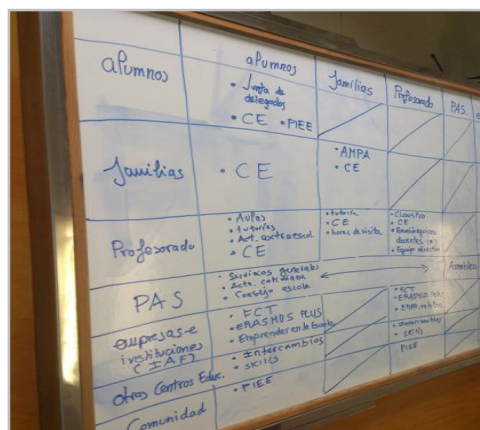 alumnos familias Profesorado PAS
alumnos
• Junta de
delegados
• CE • PIEE
familias
• CE
• AMPA
• CE
Profesorado
• Aulas
• tutorías
• Act. extraescol.
• CE
• tutoría
• CE
• horas de visita
• Claustro
• CE
docentes
• Equipo directivo
PAS
• Servicios generales
• Actv. cotidiana
• Consejo escola
Asamblea
empresas e
instituciones
(IAF)
• FCT
• ERASMUS PLUS
• Emprender en la Escuela
• FCT
• ERASMUS PLUS
otros Centros Educ.
• Intercambios
• SKILLS
• SKILLS
Comunidad
• PIEE
PIEE